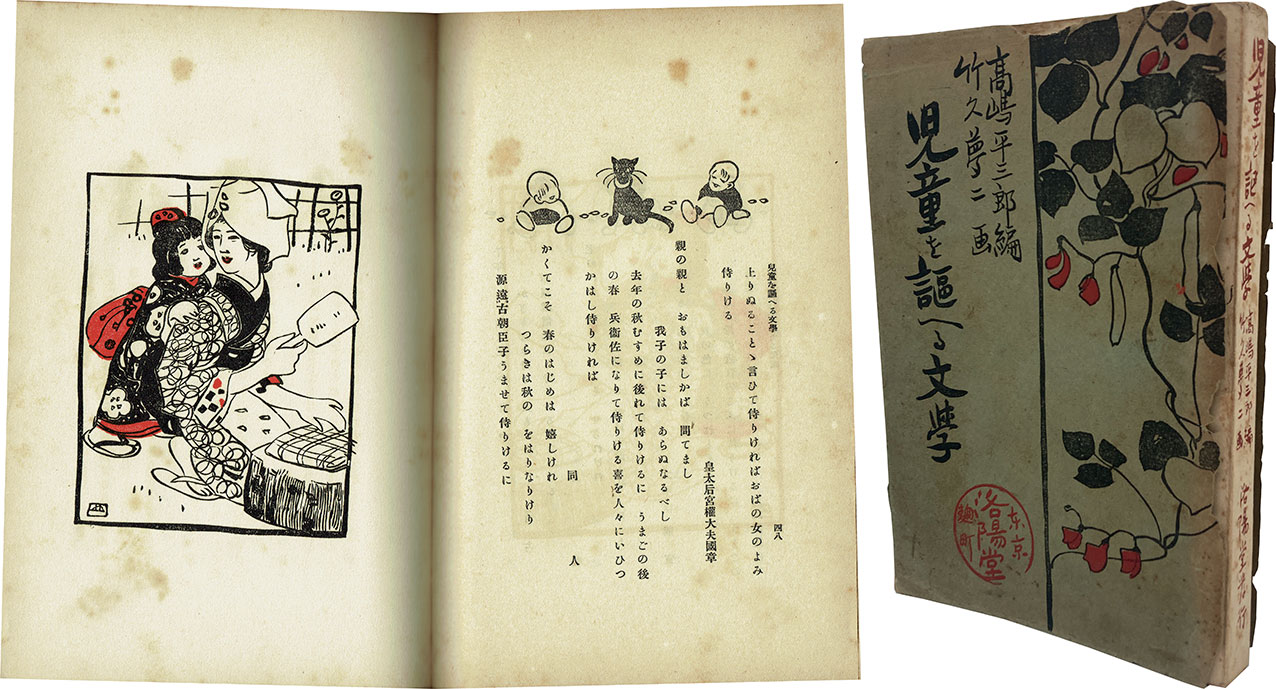 兒童を謳へる文學 四八
上りぬることゝ言ひて侍りければおばの女のよみ
侍りける
皇太后宮權大夫國章
親の親と おもはましかば 問てまし
我子の子には あらぬなるべし
去年の秋むすめに後れて侍りけるに うまごの後
の春 兵衞佐になりて侍りける喜を人々にいひつ
かはし侍りければ
同 人
かくてこそ 春のはじめは 嬉しけれ
つらきは秋の をはりなりけり
源遠古朝臣子うませて侍りけるに
高嶋平三郎編
竹久夢二画
児童を謳へる文学
东京
洛陽堂
麹町
児童を謳へる文學
高嶋平三郎編
竹久夢二画
洛陽堂発行